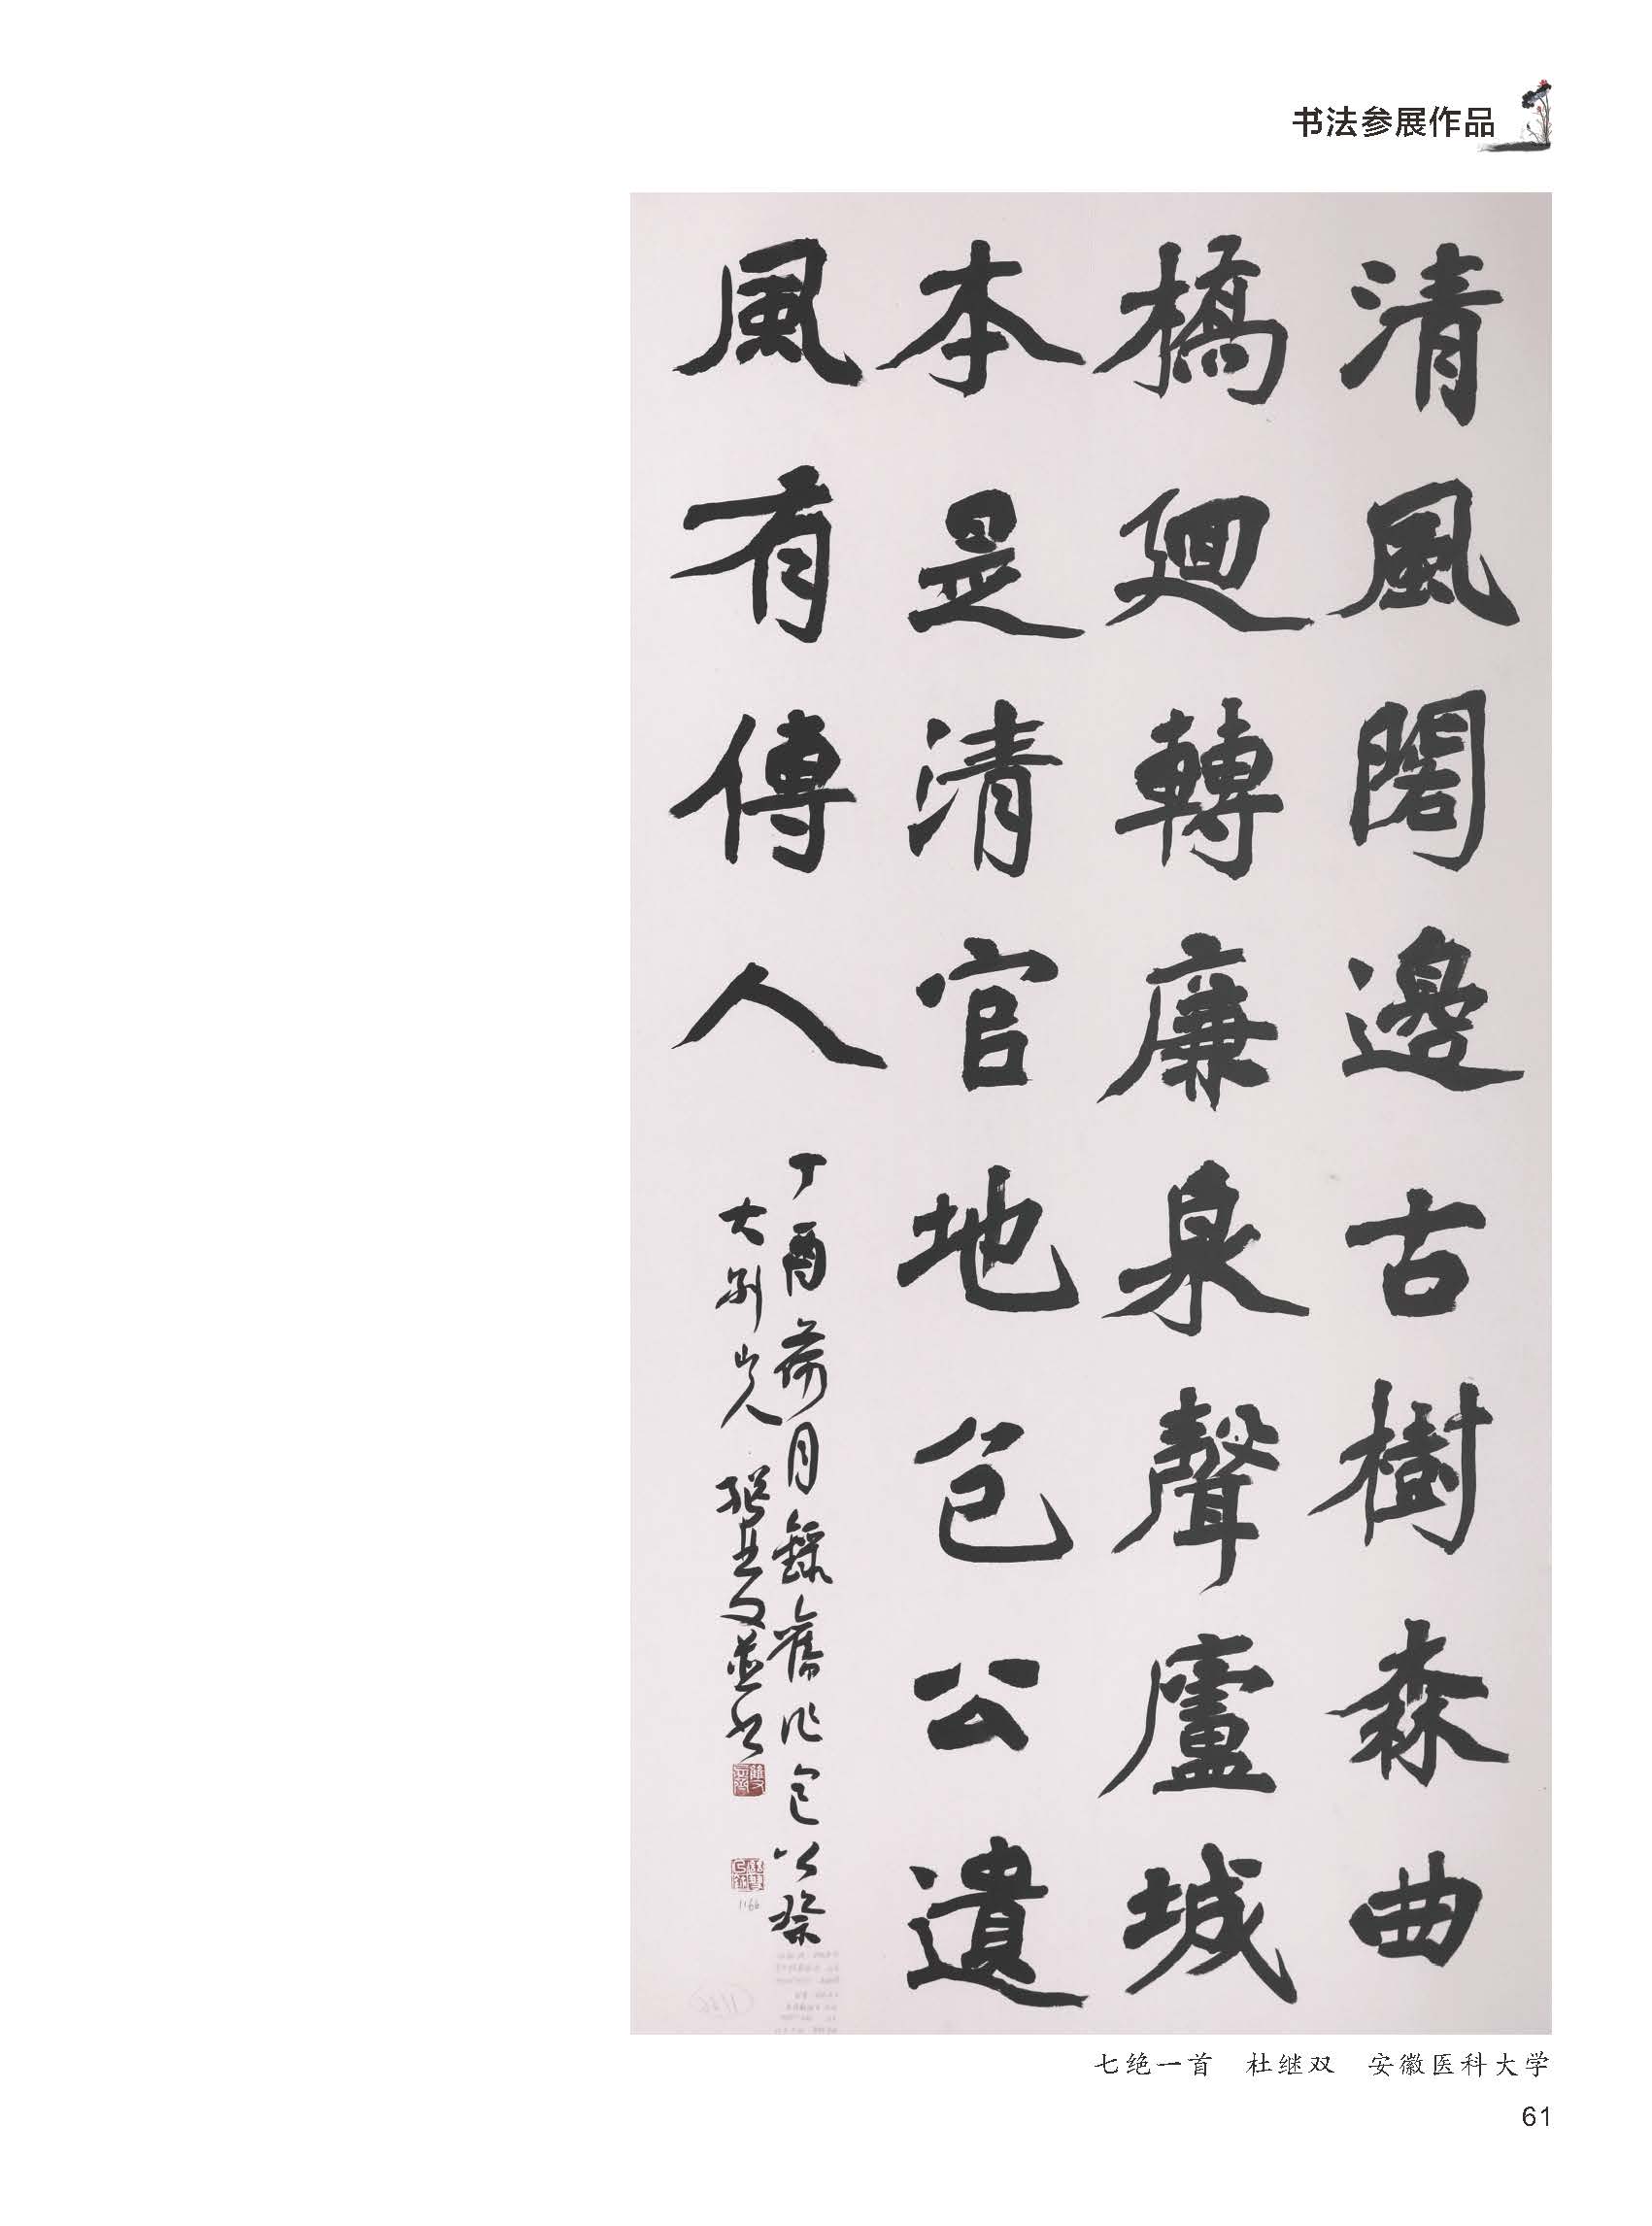 书法参展作品
清風閣邊古樹森曲
橋廻轉廉泉聲廬城
本是清官地包公遺
風有傳人
丁酉荷月錄舊作包公祭
大別山人继双並书
七绝一首 杜继双 安徽医科大学
61